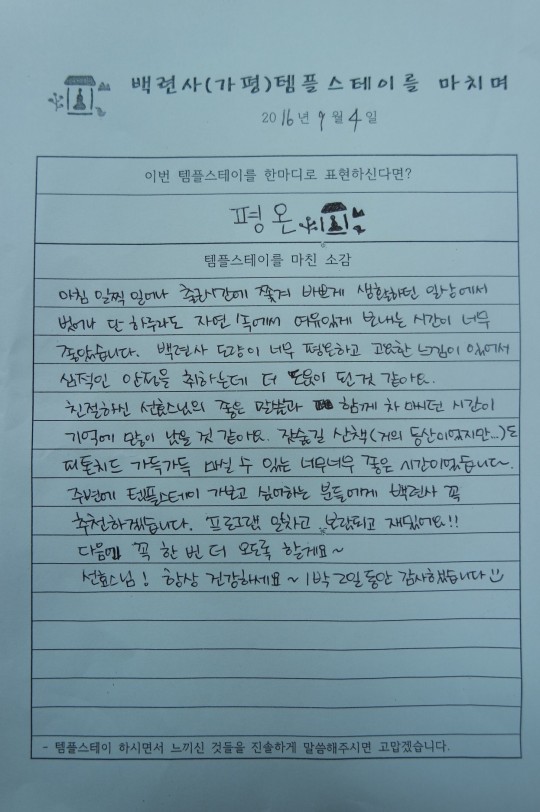 백련사(가평)템플스테이를 마치며
2016년 9월 4일
이번 템플스테이를 한마디로 표현하신다면?
평온
템플스테이를 마친 소감
아침 일찍 일어나 출퇴시간에 쫓겨 바쁘게 생활하던 일상에서
벗어나 단 하루라도 자연 속에서 여유있게 보내는 시간이 너무
좋았습니다. 백련사 도량이 너무 평온하고 고요한 느낌이 있어서
심적인 안정을 취하는데 더 도움이 된 것 같아요.
친절하신 선효스님의 좋은 말씀과 함께 차 마시던 시간이
기억에 많이 남을 것 같아요. 잣숲길 산책(거의 등산이었지만...)도
피톤치드 가득가득 마실 수 있는 너무너무 좋은 시간이었습니다.
주변에 템플스테이 가보고 싶어하는 분들에게 백련사 꼭
추천하겠습니다. 프로그램 알차고 보람되고 재밌어요!!
다음에 꼭 한 번 더 오도록 할게요~
선효스님! 항상 건강하세요~ 1박 2일 동안 감사했습니다
- 템플스테이 하시면서 느끼신 것들을 진솔하게 말씀해주시면 고맙겠습니다.